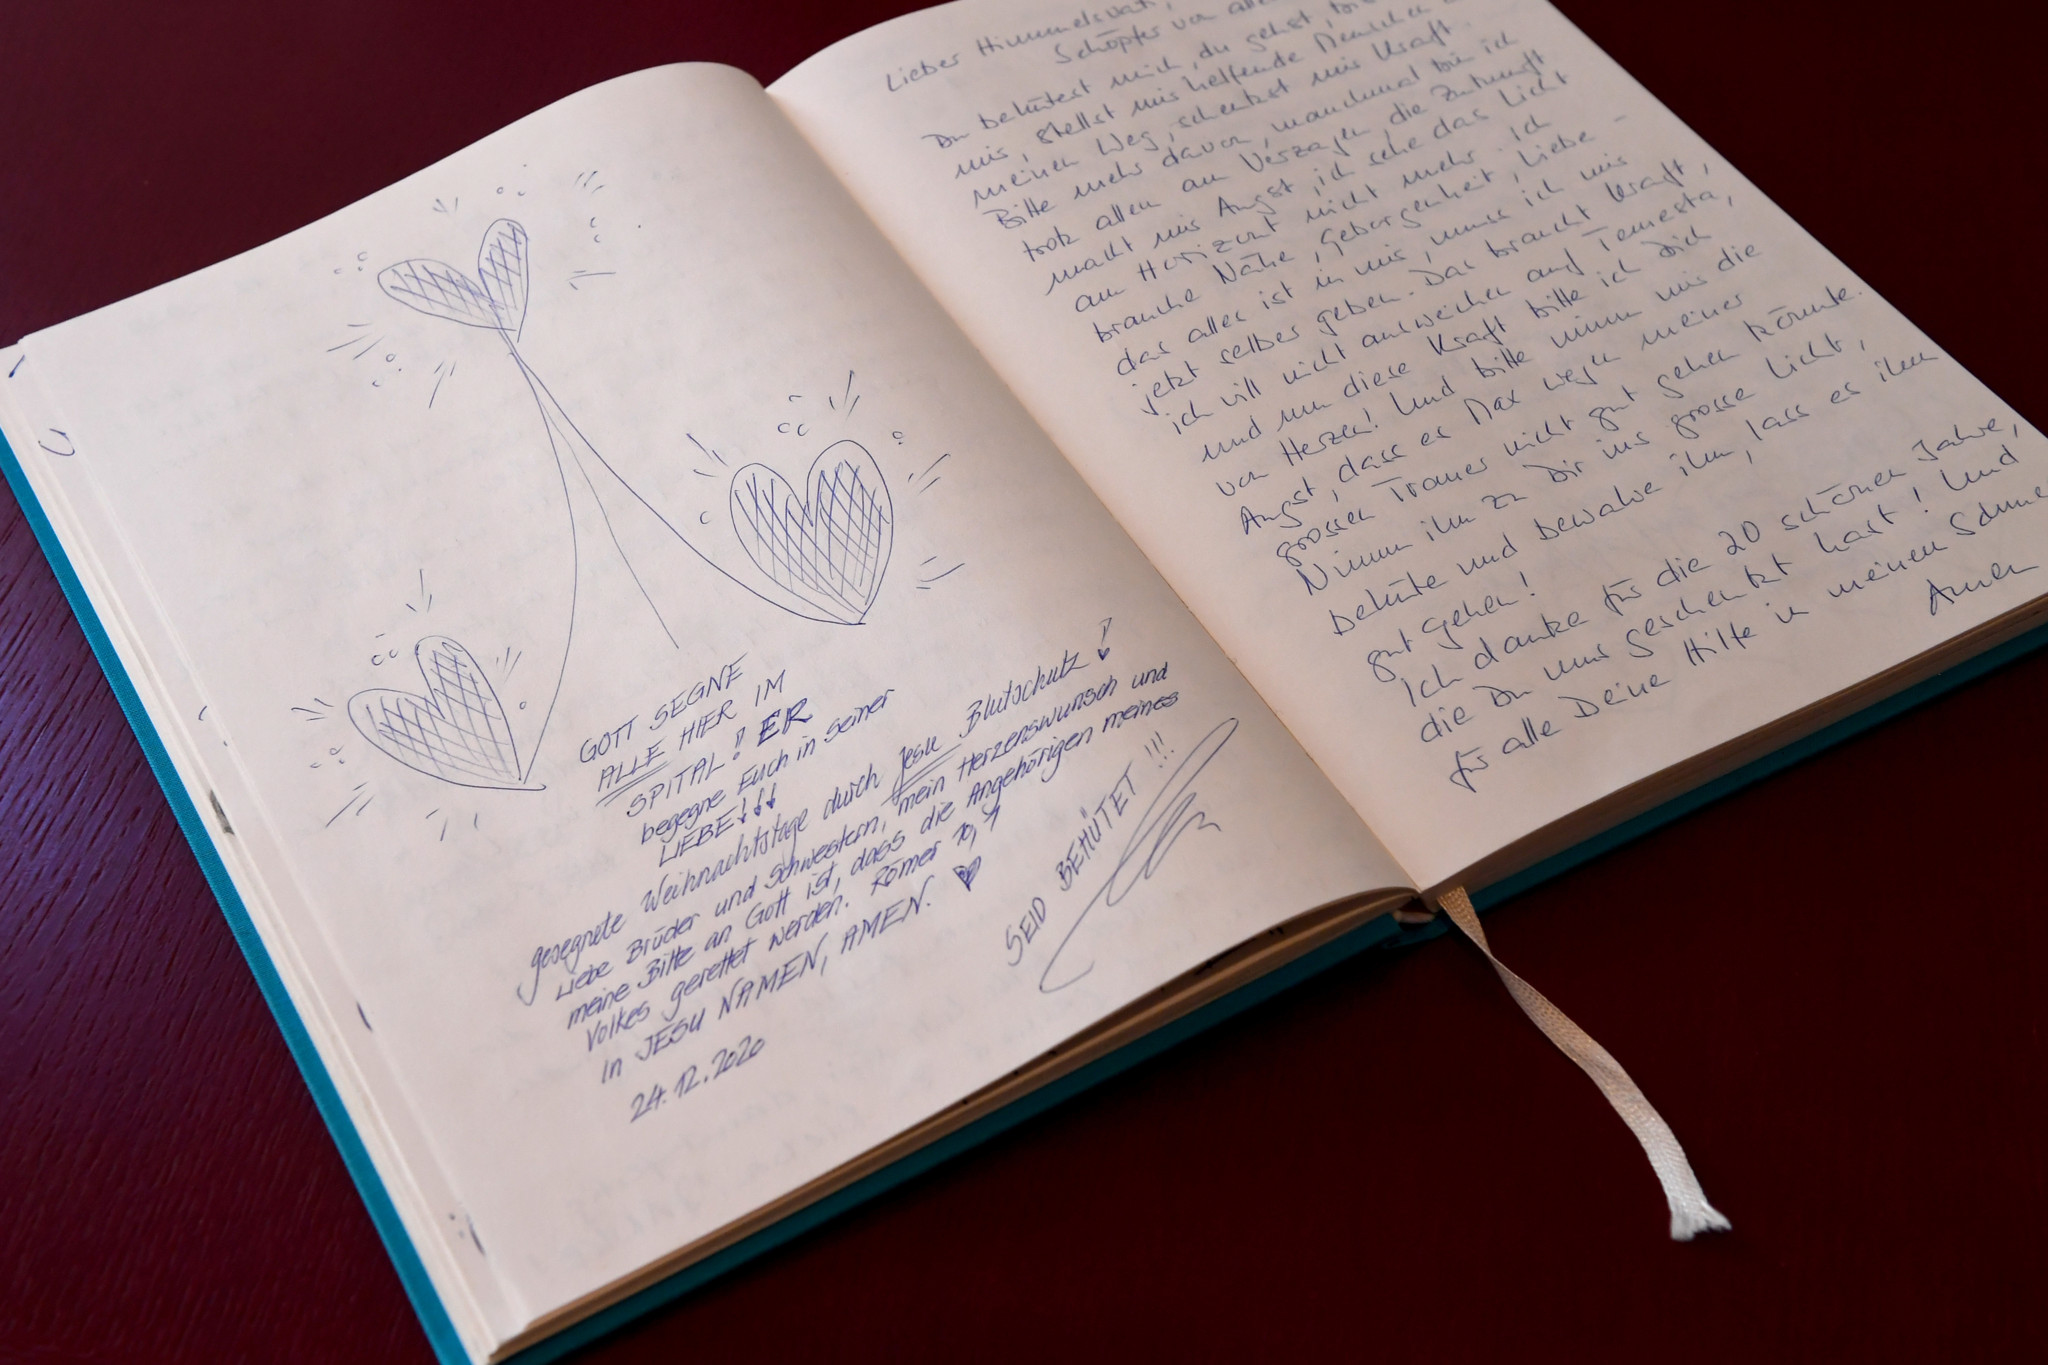 GOTT SEGNE
ALLE HIER IM
SPITAL! ER
begegne Euch in seiner
LIEBE!!!
gesegnete Weihnachtstage durch Jesu Blutschutz!
Liebe Brüder und Schwestern, mein Herzenswunsch und
meine Bitte an Gott ist, dass die Angehörigen meines
Volkes gerettet werden. Römer 10,1
in JESU NAMEN, AMEN.
24.12.2020
SEID BEHÜTET!!!
Lieber Himmelsvati,
Schöpfer von allem
Du behütest mich, du gehst
mir, stellst mir helfende Menschen
meinen Weg, schenkst mir Kraft.
Bitte mehr davon, manchmal bin ich
trotz allem am Verzagen, die Zukunft
macht mir Angst, ich sehe das Licht
am Horizont nicht mehr. Ich
brauche Nähe, Geborgenheit, Liebe -
das alles ist in mir, muss ich mir
jetzt selber geben. Das braucht Kraft,
ich will nicht ausweichen auf Temesta,
und um diese Kraft bitte ich Dich
von Herzen! Und bitte nimm mir die
Angst, dass es Max wegen meiner
grossen Trauer nicht gut gehen könnte.
Nimm ihn zu Dir ins grosse Licht,
behüte und bewahre ihn, lass es ihm
gut gehen!
Ich danke für die 20 schönen Jahre,
die Du uns geschenkt hast! Und
für alle Deine Hilfe in meinem
Amen